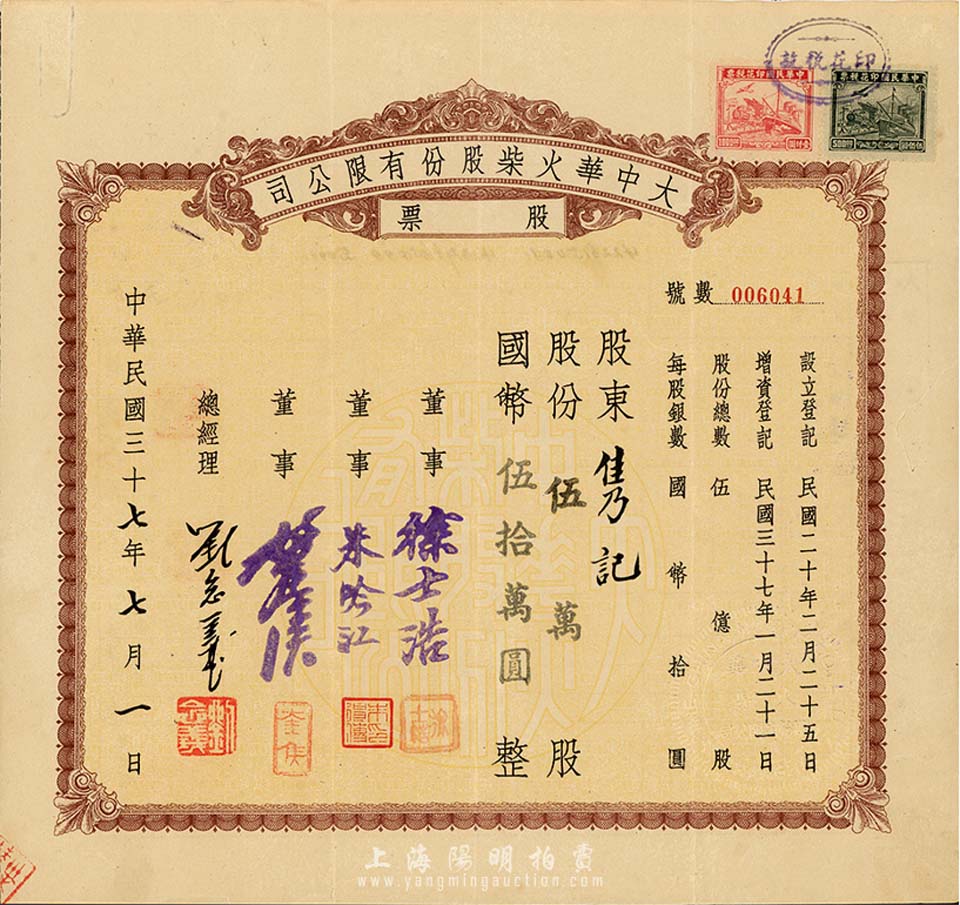 印花稅訖
中華民國印花稅票
中華民國印花稅票
1000
500
大中華火柴股份有限公司
股票
號數 006041
設立登記 民國二十年二月二十五日
增資登記 民國三十七年一月二十一日
股份總數 伍億股
每股銀數 國幣拾圓
股東 隹乃記
股份 伍萬股
國幣 伍拾萬圓整
董事 徐士浩
董事
董事
總經理 劉念義
中華民國三十七年七月一日
上海陽明拍賣
www.yangmingauction.com